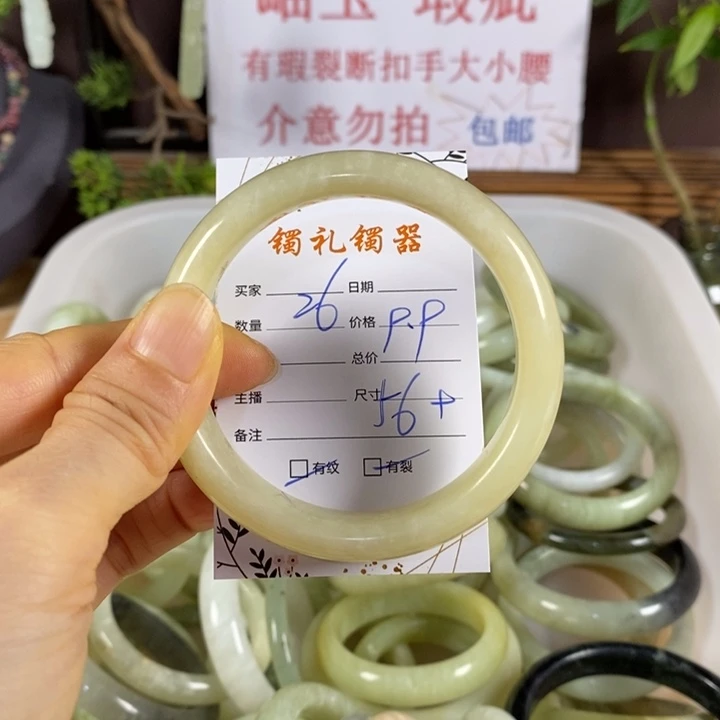 岫玉 瑕疵
有瑕裂断扣手大小腰
介意勿拍 包邮
镯礼镯器
买家 26 日期
数量 价格 9.9
总价
主播 尺寸 56+
备注
有纹 有裂